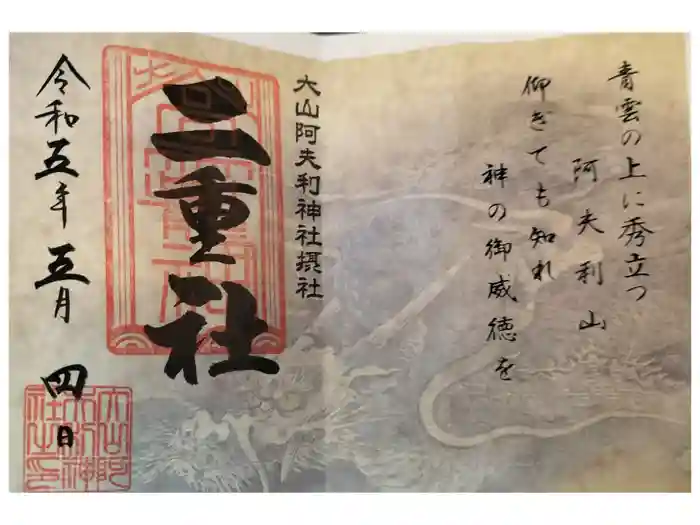 青雲の上に秀立つ
阿夫利山
仰ぎても知れ
神の御威徳を
大山阿夫利神社摂社
二重社
令和五年五月四日
大山阿
夫利神
社之印